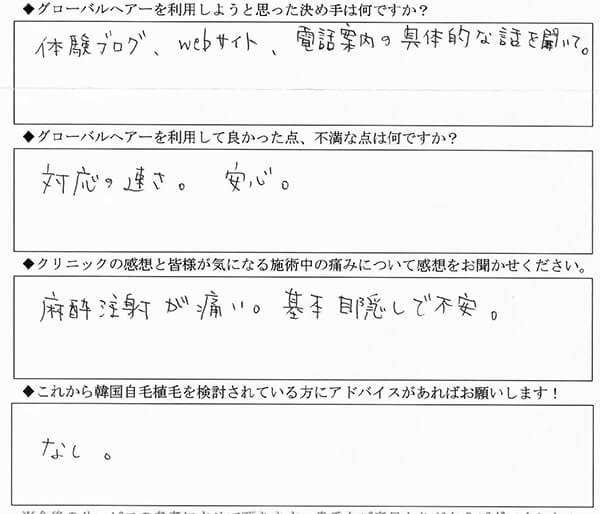 ◆グローバルヘアーを利用しようと思った決め手は何ですか？
体験ブログ、webサイト、電話案内の具体的な話を聞いて。
◆グローバルヘアーを利用して良かった点、不満な点は何ですか？
対応の速さ。 安心。
◆クリニックの感想と皆様が気になる施術中の痛みについて感想をお聞かせください。
麻酔注射が痛い。基本目隠しで不安。
◆これから韓国自毛植毛を検討されている方にアドバイスがあればお願いします！
なし。